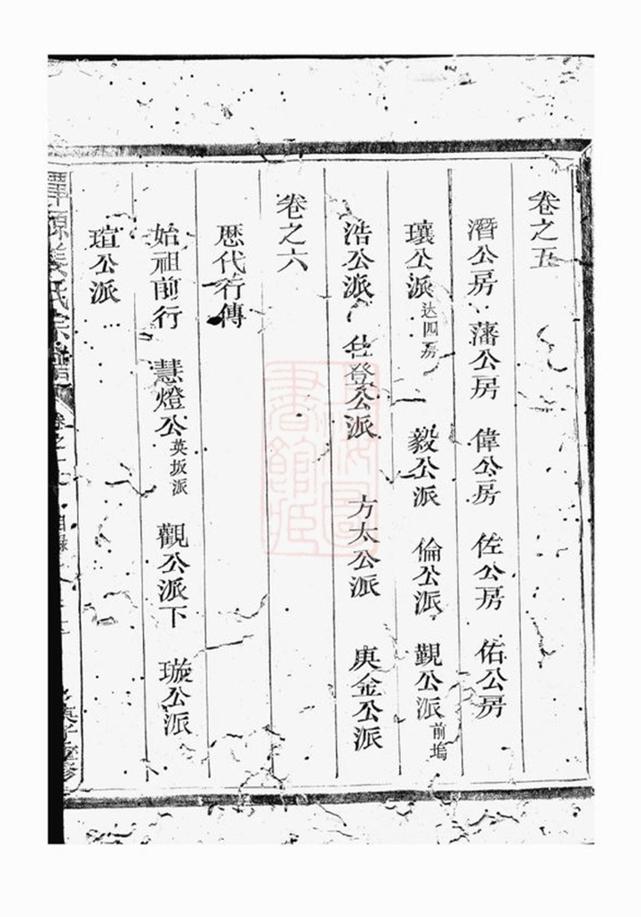 卷之五
潛公房 藩公房 偉公房 佐公房 佑公房
瓌公派 达四房 毅公派 倫公派 觀公派 前塢
浩公派 仕登公派 方太公派 庚金公派
卷之六
歷代行傳
始祖前行 慧燈公 英坂派 觀公派下 璇公派
瑄公派
源姜氏宗譜 卷之 目錄